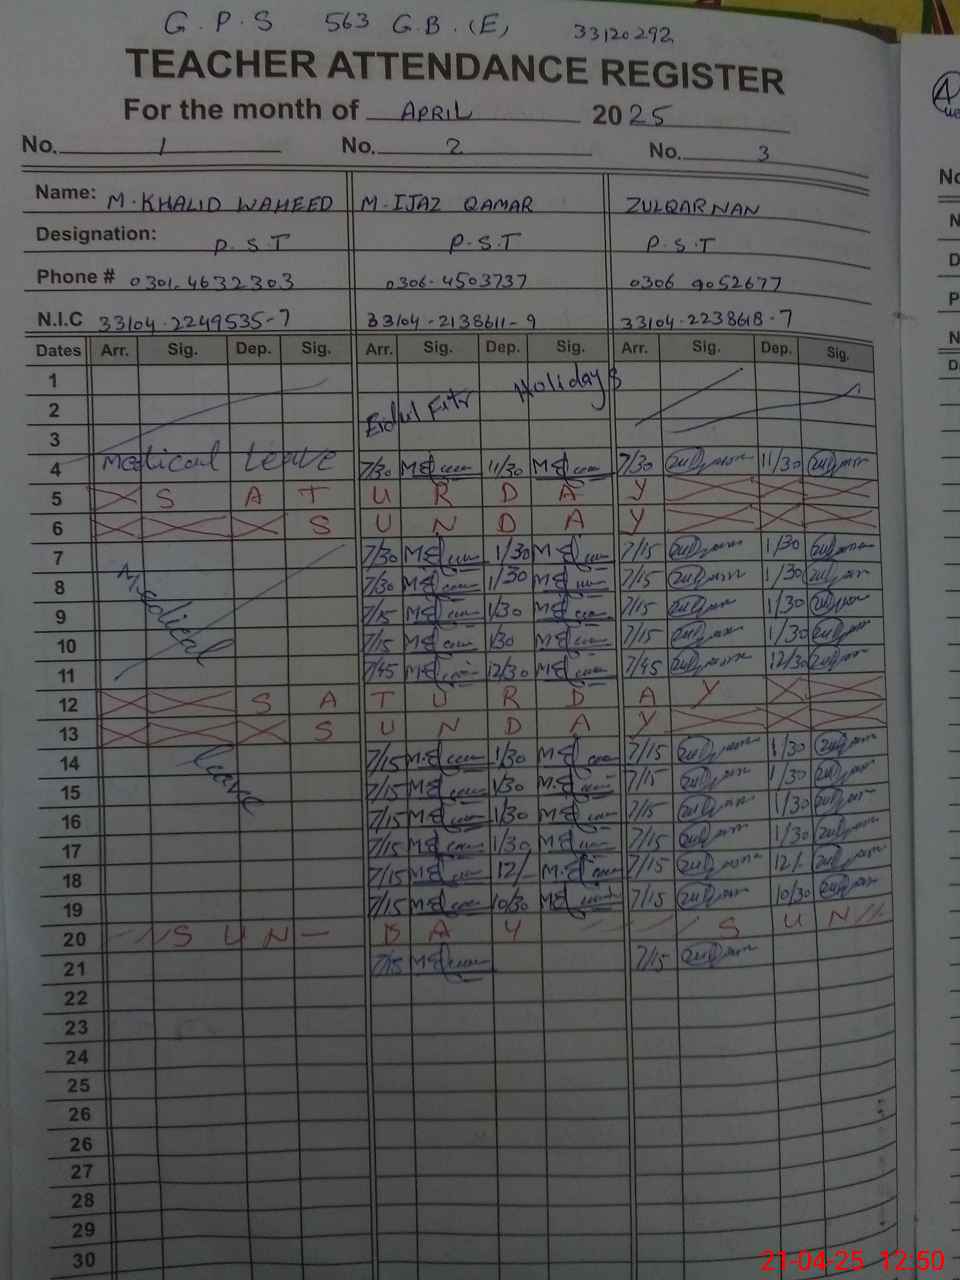 G.P.S 563 G.B.(E) 33120292
TEACHER ATTENDANCE REGISTER
For the month of APRIL 2025
No. 1 No. 2 No. 3
Name: M.KHALID WAHEED M.IJAZ QAMAR ZULQARNAN
Designation: P.S.T P.S.T P.S.T
Phone # 0301.4632303 0306-4503737 0306 9052677
N.I.C 33104-2249535-7 33104-2138611-9 33104-2238618-7
Dates Arr. Sig. Dep. Sig. Arr. Sig. Dep. Sig. Arr. Sig. Dep. Sig.
1
2 Eidul Fitr Holidays
3
4 Medical Leave 7/30 11/30 7/30 11/30
5 S A T U R D A Y
6 S U N D A Y
7 7/30 1/30 7/15 1/30
8 Medical 7/30 1/30 7/15 1/30
9 7/15 1/30 7/15 1/30
10 7/15 1/30 7/15 1/30
11 7/45 12/30 7/45 12/30
12 S A T U R D A Y
13 S U N D A Y
14 leave 7/15 1/30 7/15 1/30
15 7/15 1/30 7/15 1/30
16 7/15 1/30 7/15 1/30
17 7/15 1/30 7/15 1/30
18 7/15 12/- 7/15 12/-
19 7/15 10/30 7/15 10/30
20 S U N - D A Y S U N
21 7/15 7/15
22
23
24
25
26
26
27
28
29
30
21-04-25 12:50